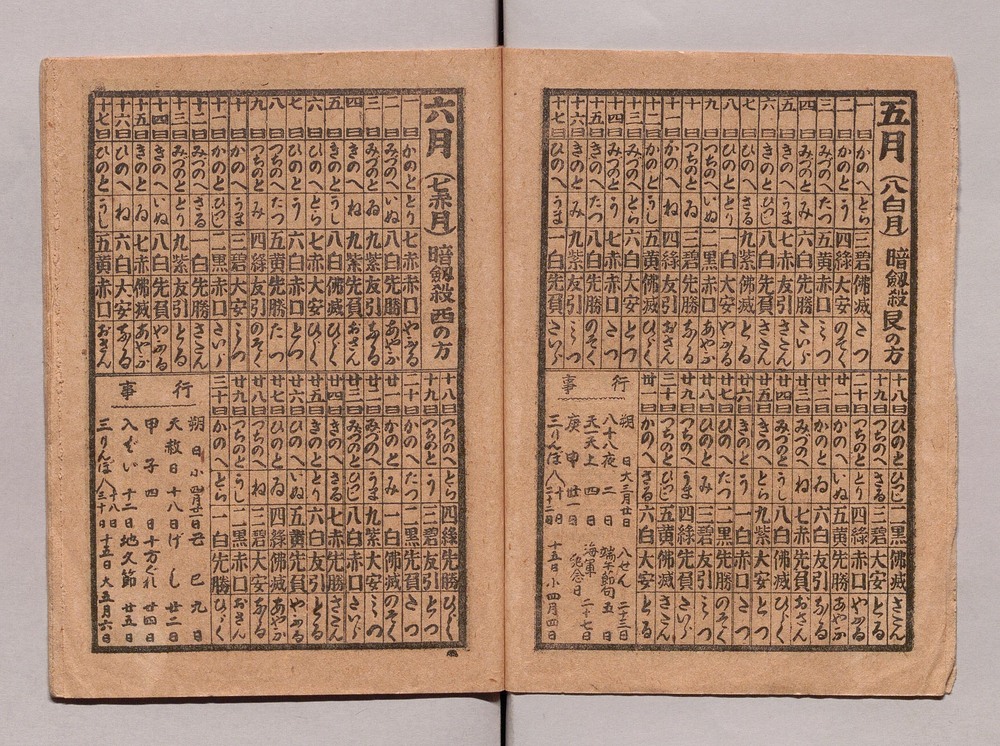 五月(八白月)暗劔殺艮の方
一日かのへとら三碧佛滅たつ
二日かのとう四緑大安のぞく
三日みづのへたつ五黄赤口みつ
四日みづのとみ六白先勝たいら
五日きのへうま七赤友引さだん
六日きのとひつじ八白先負さだん
七日ひのへさる九紫佛滅とる
八日ひのととり一白大安やぶる
九日つちのへいぬ二黒赤口あやぶ
十日つちのとゐ三碧先勝なる
十一日かのへね四緑友引おさん
十二日かのとうし五黄佛滅ひらく
十三日みづのへとら六白大安とつ
十四日みづのとう七赤赤口たつ
十五日きのへたつ八白先勝のぞく
十六日きのとみ九紫友引みつ
十七日ひのへうま一白先負たいら
十八日ひのとひつじ二黒佛滅さだん
十九日つちのへさる三碧大安とる
二十日つちのととり四緑赤口やぶる
廿一日かのへいぬ五黄先勝あやぶ
廿二日かのとゐ六白友引なる
廿三日みづのへね七赤先負おさん
廿四日みづのとうし八白佛滅ひらく
廿五日きのへとら九紫大安とつ
廿六日きのとう一白赤口たつ
廿七日ひのへたつ二黒先勝のぞく
廿八日ひのとみ三碧友引みつ
廿九日つちのへうま四緑先負たいら
三十日つちのとひつじ五黄佛滅さだん
卅一日かのへさる六白大安とる
行事
朔日大三月廿日 八せん 二三日
八十八夜 二日 端午節句 五日
天一天上 四日 海軍記念日 二十七日
庚申 廿一日
三りんぼ 八日 十日 二十二日 十五日小四月四日
六月(七赤月)暗劔殺西の方
一日かのととり七赤赤口やぶる
二日みづのへいぬ八白先勝あやぶ
三日みづのとゐ九紫友引なる
四日きのへね九紫先負おさん
五日きのとうし八白佛滅ひらく
六日ひのへとら七赤大安ひらく
七日ひのとう六白赤口とつ
八日つちのへたつ五黄先勝たつ
九日つちのとみ四緑友引のぞく
十日かのへうま三碧大安みつ
十一日かのとひつじ二黒赤口たいら
十二日みづのへさる一白先勝さだん
十三日みづのととり九紫友引とる
十四日きのへいぬ八白先負やぶる
十五日きのとゐ七赤佛滅あやぶ
十六日ひのへね六白大安なる
十七日ひのとうし五黄赤口おさん
十八日つちのへとら四緑先勝ひらく
十九日つちのとう三碧友引とつ
二十日かのへたつ二黒先負たつ
廿一日かのとみ一白佛滅のぞく
廿二日みづのへうま九紫大安みつ
廿三日みづのとひつじ八白赤口たいら
廿四日きのへさる七赤先勝さだん
廿五日きのととり六白友引とる
廿六日ひのへいぬ五黄先負やぶる
廿七日ひのとゐ四緑佛滅あやぶ
廿八日つちのへね三碧大安なる
廿九日つちのとうし二黒赤口おさん
三十日かのへとら一白先勝ひらく
行事
朔日小四月廿一日 己巳 九日
天赦日 十八日 げし 廿二日
甲子 四日 十方ぐれ 廿四日
入ばい 十二日 地久節 廿五日
三りんぼ 八日 三十日 十五日大五月六日